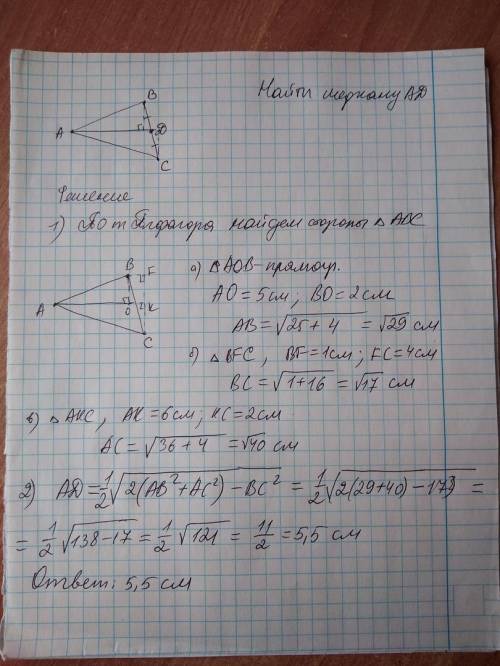 Найти медиану AD
B
A
D
C
Решение
1) По т Пифагора найдем стороны △ ABC
B F
A
O K
C
а) △AOB – прямоуг.
AO = 5см, BO = 2см
AB = √25 + 4 = √29 см
б) △ BFC, BF = 1см; FC = 4см
BC = √1+16 = √17 см
в) △ AKC, AK = 6см; KC = 2см
AC = √36 + 4 = √40 см
2) AD = 1/2 √2(AB² + AC²) – BC² = 1/2 √2(29+40) – 17 =
= 1/2 √138–17 = 1/2 √121 = 11/2 = 5,5 см
Ответ: 5,5 см